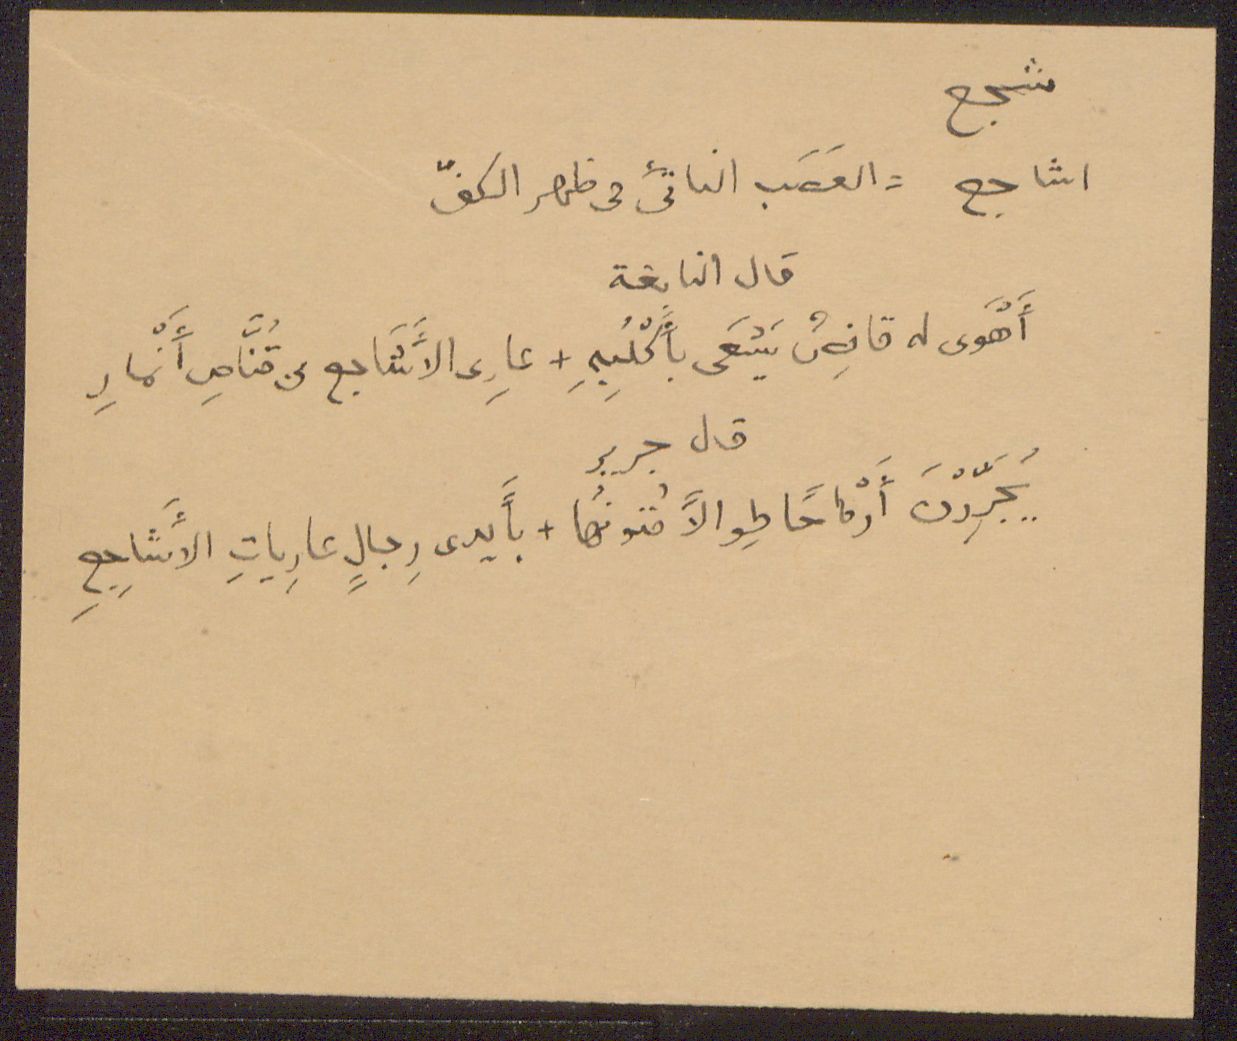 شجع
اشاجع = العَصَب الناتئ فى ظهر الكفّ
قال النابغة
أَهْوَى له قانِصٌ يَسْعَى بأَكْلُبِهِ + عارِى الأَشَاجع من قُنَّاصِ أَنْمارِ
قال جرير
يُجَرِّدْنَ أَرْماحًا طِوالاً مُتونُها + بأَيدى رِجالٍ عارِياتِ الأَشاجِعِ